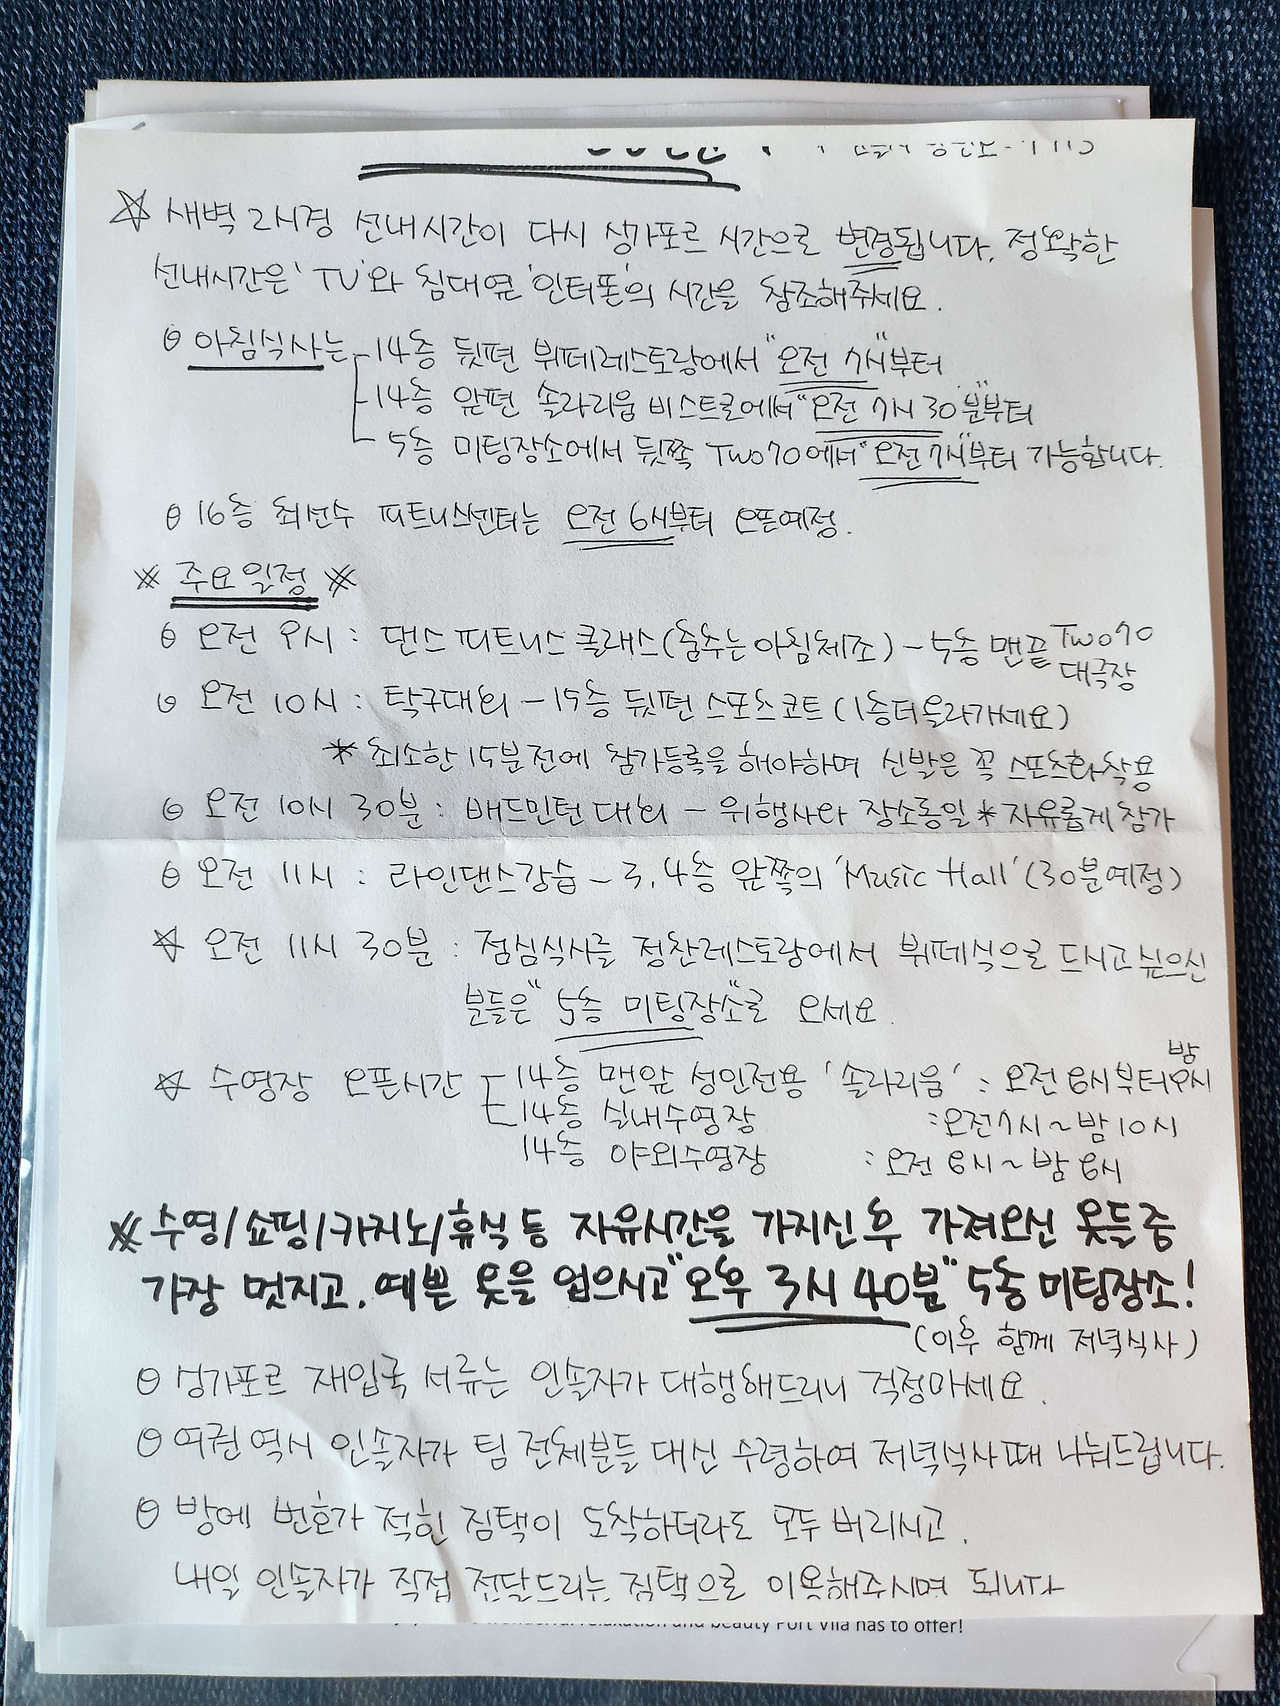 ☆ 새벽 2시경 선내시간이 다시 싱가포르 시간으로 변경됩니다. 정확한
선내시간은 'TV'와 침대옆 '인터폰'의 시간을 참조해주세요.
⊙ 아침식사는 14층 뒷편 뷔페레스토랑에서 "오전 7시"부터
14층 앞편 솔라리움 비스트로에서 "오전 7시 30분"부터
5층 미팅장소에서 뒷쪽 Two70에서 "오전 7시"부터 가능합니다.
⊙ 16층 최선수 피트니스센터는 오전 6시부터 오픈예정.
※ 주요일정 ※
⊙ 오전 9시 : 댄스 피트니스 클래스(춤추는 아침체조) - 5층 맨끝 Two70
대극장
⊙ 오전 10시 : 탁구대회 - 15층 뒷편 스포츠코트 (1층더 올라가세요)
* 최소한 15분전에 참가등록을 해야하며 신발은 꼭 스포츠화착용
⊙ 오전 10시 30분 : 배드민턴 대회 - 위행사와 장소동일 * 자유롭게 참가
⊙ 오전 11시 : 라인댄스강습 - 3,4층 앞쪽의 'Music Hall' (30분예정)
☆ 오전 11시 30분 : 점심식사를 정찬레스토랑에서 뷔페식으로 드시고 싶으신
분들은 "5층 미팅장소"로 오세요.
☆ 수영장 오픈시간 14층 맨앞 성인전용 '솔라리움' : 오전 6시부터 밤 9시
14층 실내수영장 : 오전 7시 ~ 밤 10시
14층 야외수영장 : 오전 6시 ~ 밤 6시
※ 수영/쇼핑/카지노/휴식 등 자유시간을 가지신 후 가져오신 옷들중
가장 멋지고, 예쁜 옷을 입으시고 "오후 3시 40분" 5층 미팅장소!
(이후 함께 저녁식사)
⊙ 싱가포르 재입국 서류는 인솔자가 대행해드리니 걱정마세요.
⊙ 여권 역시 인솔자가 팀 전체분들 대신 수령하여 저녁식사때 나눠드립니다.
⊙ 방에 번호가 적힌 짐택이 도착하더라도 모두 버리시고,
내일 인솔자가 직접 전달드리는 짐택으로 이용해주시면 됩니다
and beauty Port Vila has to offer!